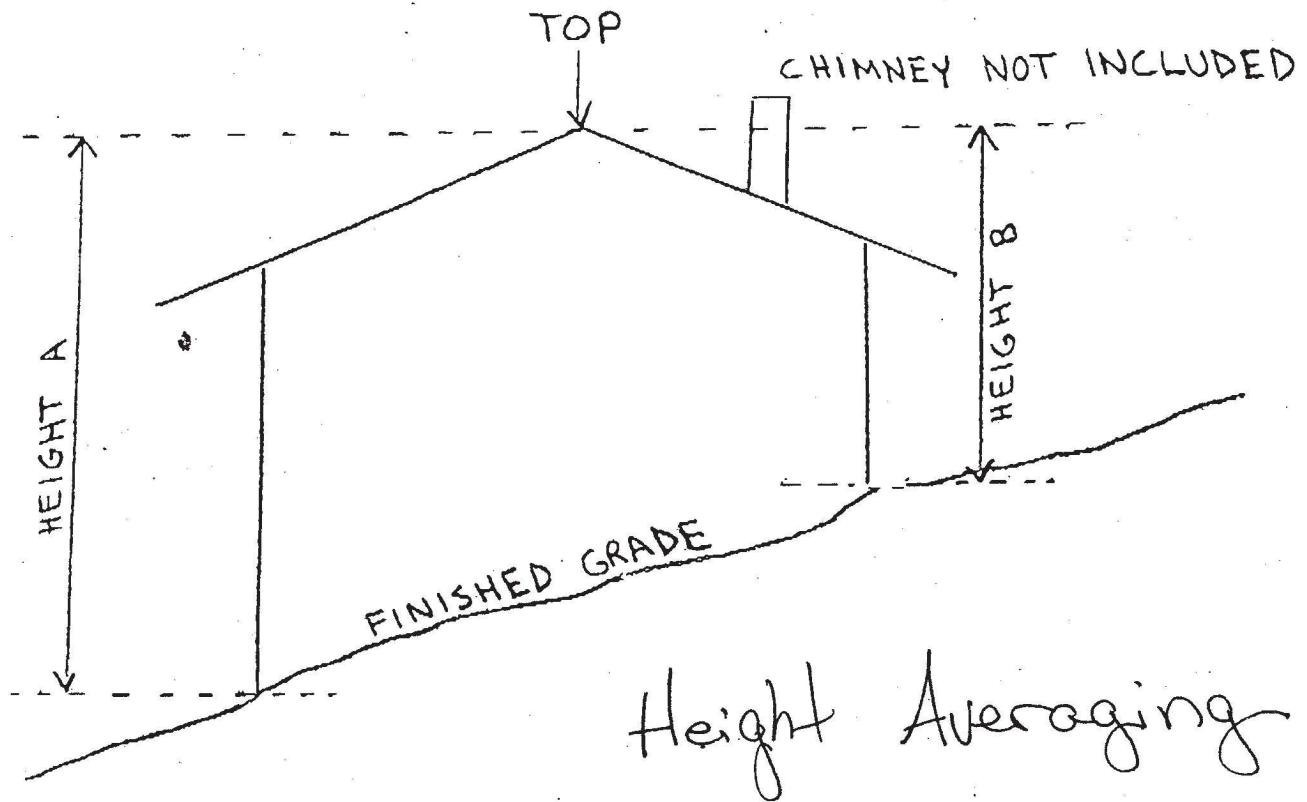 TOP
CHIMNEY NOT INCLUDED
HEIGHT A
HEIGHT B
FINISHED GRADE
Height Averaging